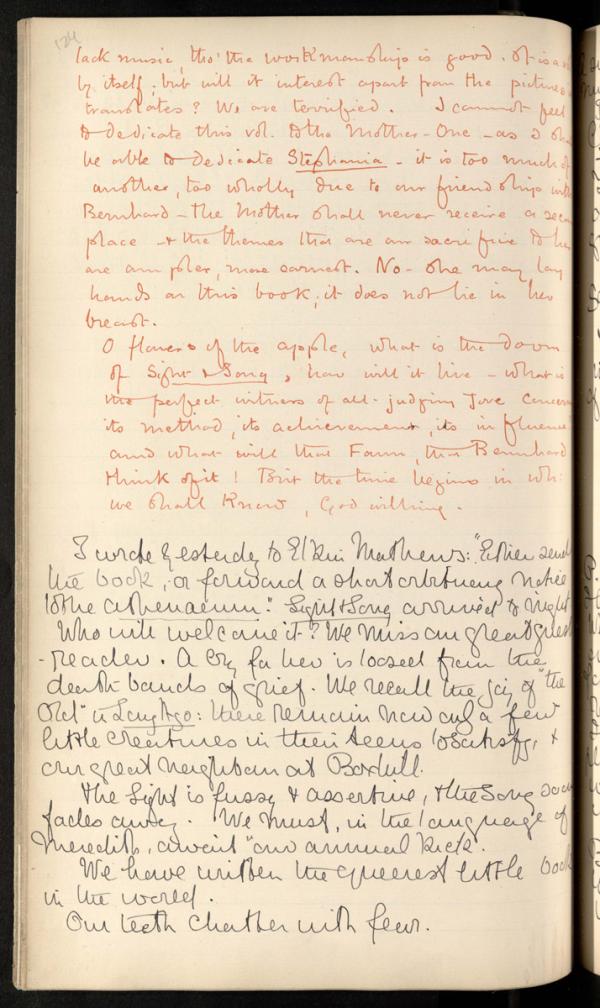 124
lack music, tho' the workmanship is good. It is a
by itself, but will it interest apart from the pictures
translates? We are terrified. I cannot feel
to dedicate this vol. to the Mother-One - as I sh
be able to dedicate Stephania - it is too much of
another, too wholly due to our friendship with
Bernhard - the Mother shall never receive a seco
place - & the themes that are our sacrifice to her
are ampler, more earnest. No - she may lay
hands on this book, it does not lie in her
breast.
O flowers of the apple, what is the down
of Sight & Song, how will it live - what is
the perfect witness of all-judging Jove concern
its method, its achievement, its influence
and what will that Faun, that Bernhard
think of it! But the time begins in wh:
we shall know, God willing.
I wrote yesterday to Elkin Mathews: "Either send
the book, or forward a short obituary notice
to the athenaeum." Sight & Song arrived to night
Who will welcome it? We miss our great guest
-reader. A cry for her is loosed from the
death bands of grief. We recall the joy of "the
Old" in Long Ago: there remain now only a few
little creatures in their teens to satisfy, &
our great neighbour at Boxhill.
The Sight is fussy & assertive, & the Song soon
fades away. We must, in the language of
Meredith, await "our annual kick".
We have written the queerest little book
in the world.
Our teeth chatter with fear.